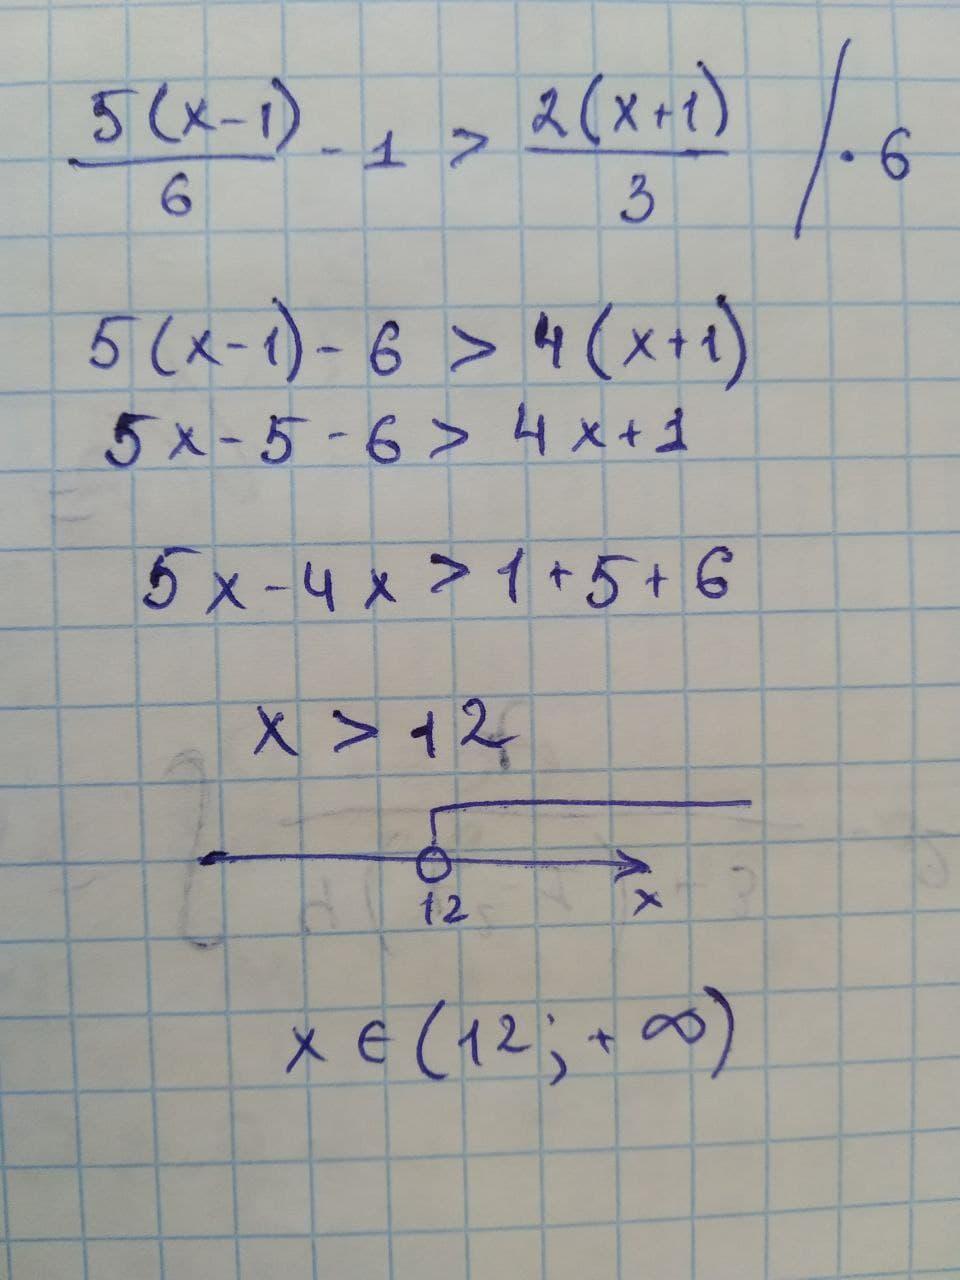 5(x-1)/6 - 1 > 2(x+1)/3 / · 6
5(x-1) - 6 > 4(x+1)
5x - 5 - 6 > 4x + 1
5x - 4x > 1 + 5 + 6
x > 12
12 x
x ∈ (12; +∞)